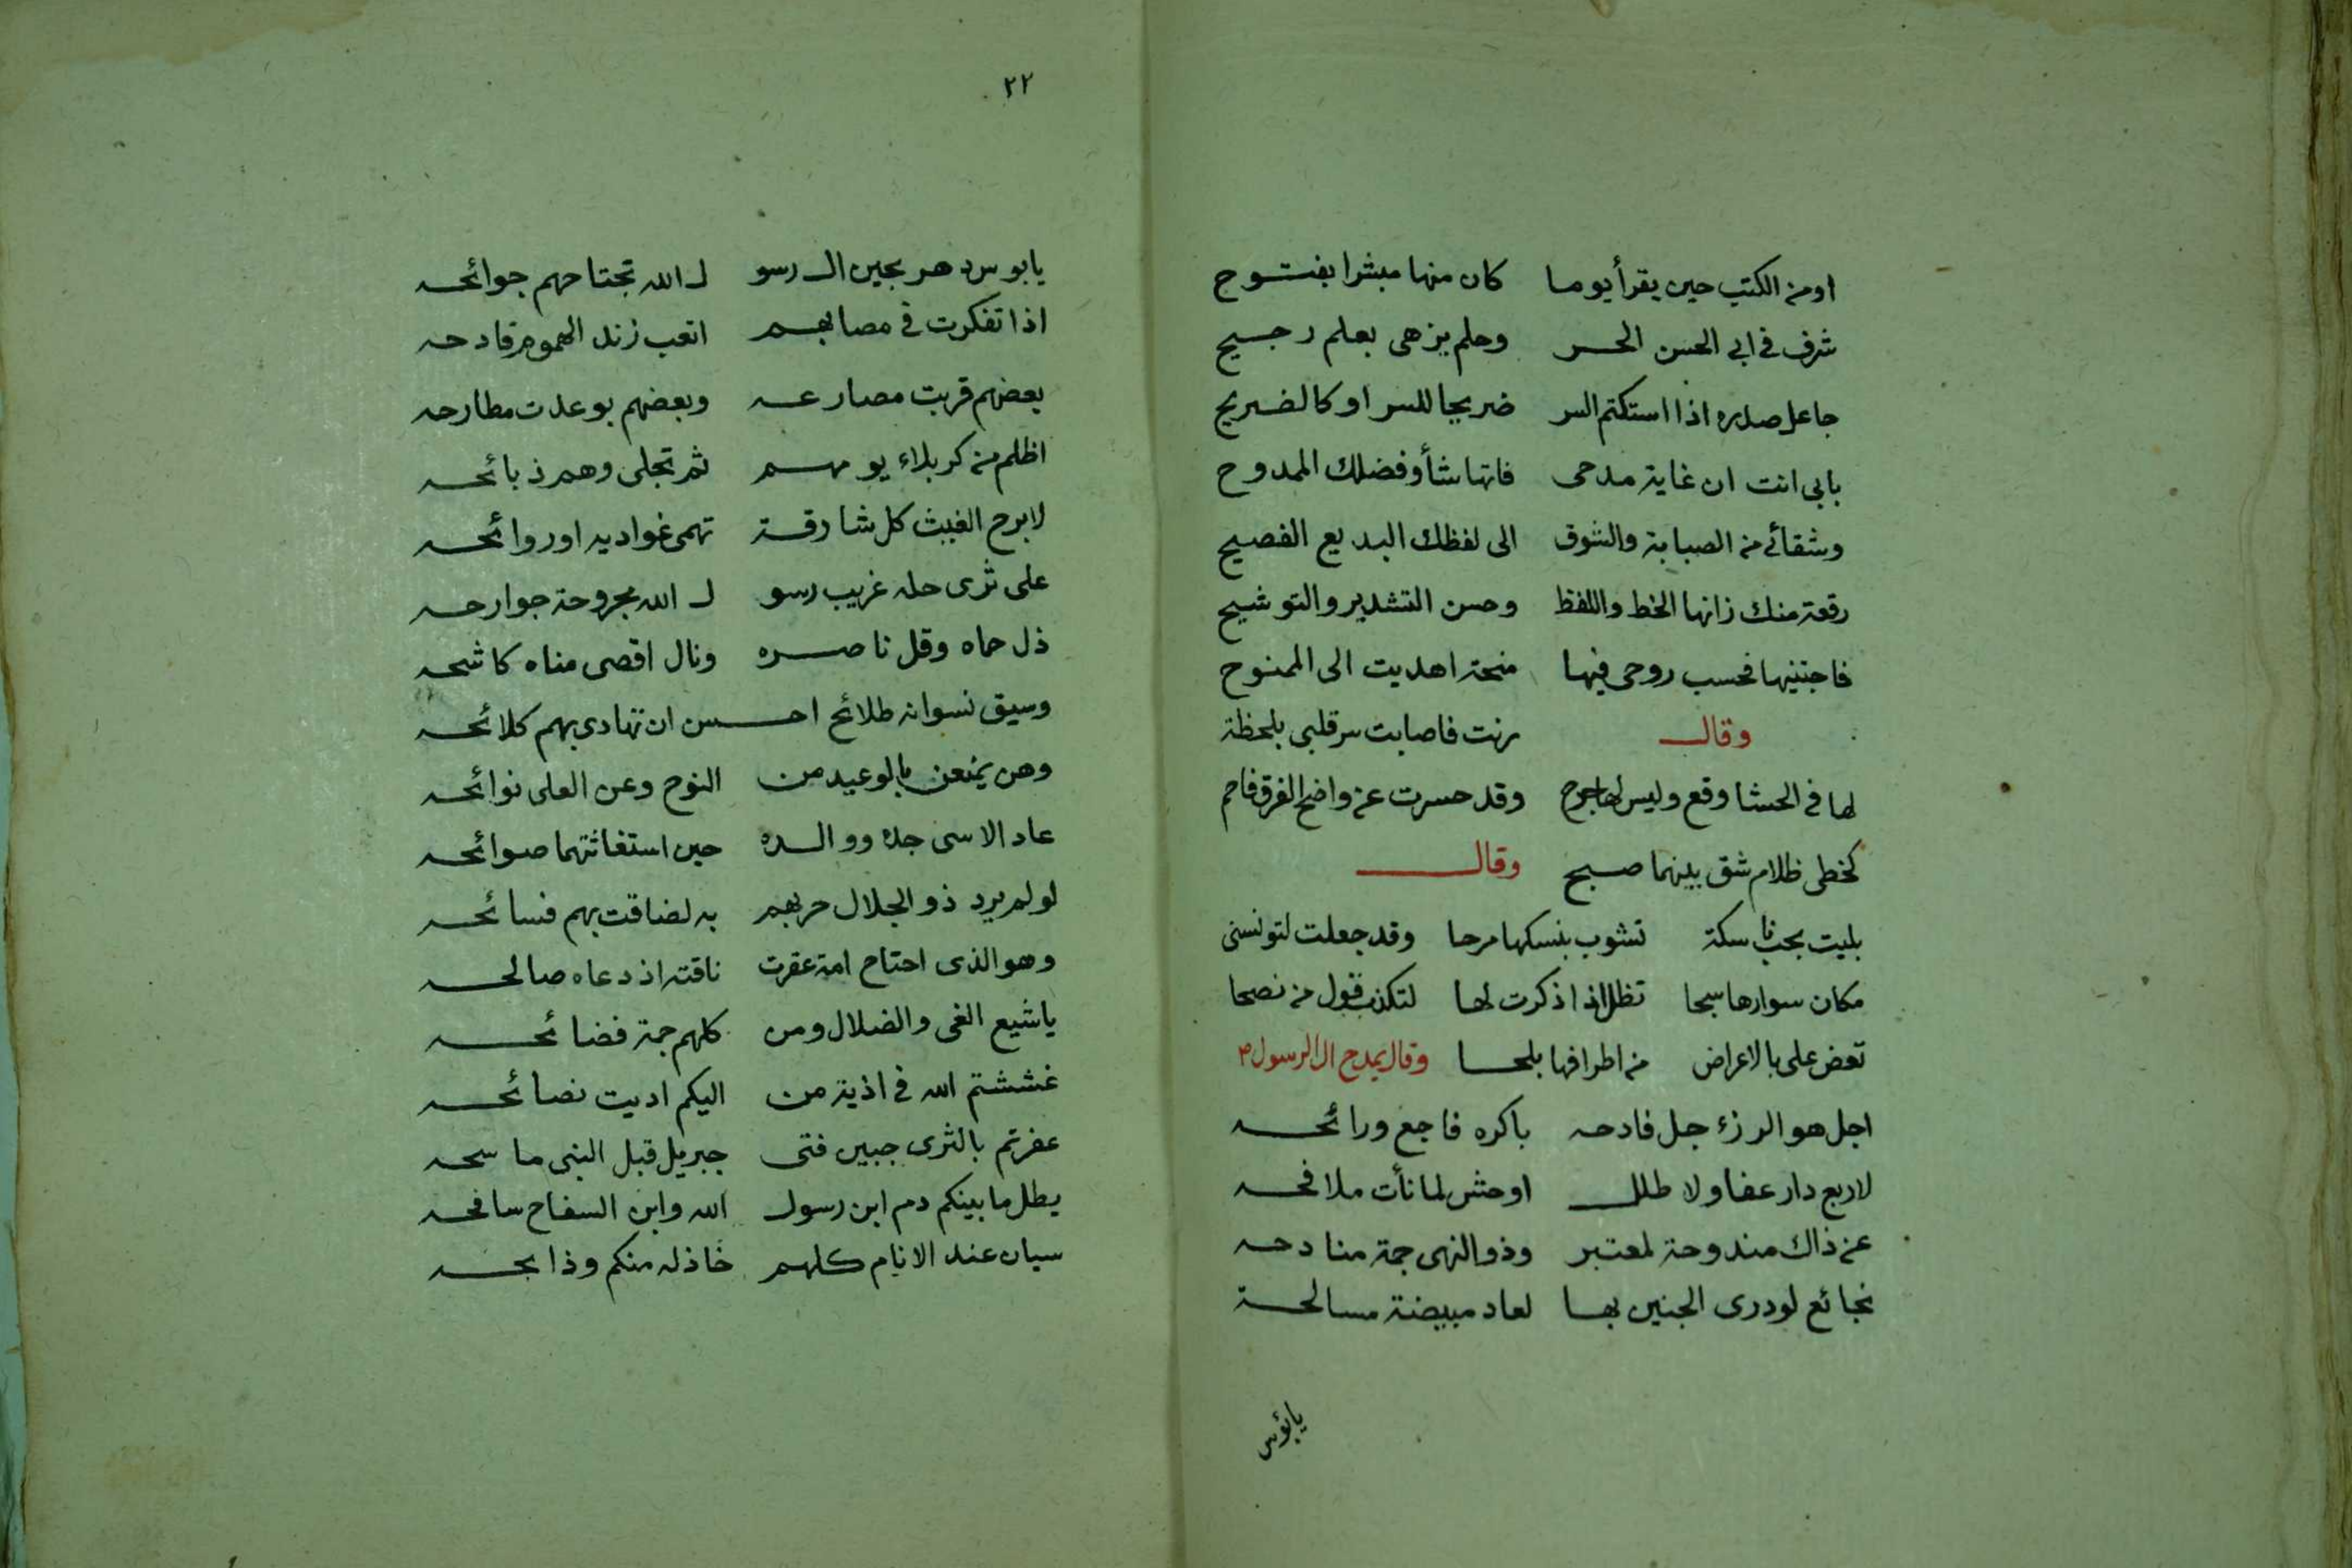 اومن الكتب حين يقرأ يوما كان منها مبشرا بفتوح
شرف في ابي الحسن الحر وحلم يزهى بعلم رجيح
جاعل صدره اذا استكتم السر ضريحا للسر او كالضريح
بابي انت ان غاية مدحى فاتها شأو فضلك الممدوح
وشقائي من الصبابة والشوق الى لفظك البديع الفصيح
رقعة منك زانها الخط واللفظ وحسن التشدير والتوشيح
فاجتنيها فحسب روحى فيها منحة اهديت الى الممنوح
وقال رنت فاصابت سر قلبى بلحظة
لها فى الحشا وقع وليس لها جرح وقد حسرت عن واضح الفرق فاحم
كخطى ظلام شق بينهما صبح وقال
بليت بحب ناسكة تشوب بنسكها مرحا وقد جعلت لتونسنى
مكان سوارها سبحا تظل اذا ذكرت لها لتكذب قول من نصحا
تعض على بالاعراض من اطرافها بلحا وقال يمدح ال الرسول م
اجل هو الرزء جل فادحه باكره فاجع ورائحه
لا ربع دار عفا ولا طلل اوحش لما نأت ملاقحه
عن ذاك مندوحة لمعتبر وذو النهى جمة منادحه
فجائع لو درى الجنين بها لعاد مبيضة مسالحة
يابؤس
٢٢
يابوس دهر بحين ال رسو ل الله تجتاحهم جوائحه
اذا تفكرت فى مصابهم اتعب زند الهموم قادحه
بعضهم قربت مصارعه وبعضهم بوعدت مطارحه
اظلم من كربلاء يومهم ثم تجلى وهم ذبائحه
لا برح الغيث كل شارقة تهمى غواديه او روائحه
على ثرى حله غريب رسو ل الله مجروحة جوارحه
ذل حماه وقل ناصره ونال اقصى مناه كاشحه
وسيق نسوانه طلائح احسن ان تهادى بهم كلائحه
وهن يمنعن بالوعيد من النوح وعن العلى نوائحه
عاد الاسى جده ووالده حين استغاثتهما صوائحه
لو لم يرد ذو الجلال حربهم به لضاقت بهم فسائحه
وهو الذى اجتاح امة عقرت ناقته اذ دعاه صالحه
ياشيع الغى والضلال ومن كلهم جمة فضائحه
غششتم الله فى اذية من اليكم اديت نصائحه
عفرتم بالثرى جبين فتى جبريل قبل النبى ماسحه
يطل ما بينكم دم ابن رسول الله وابن السفاح سافحه
سيان عند الانام كلهم خاذله منكم وذابحه